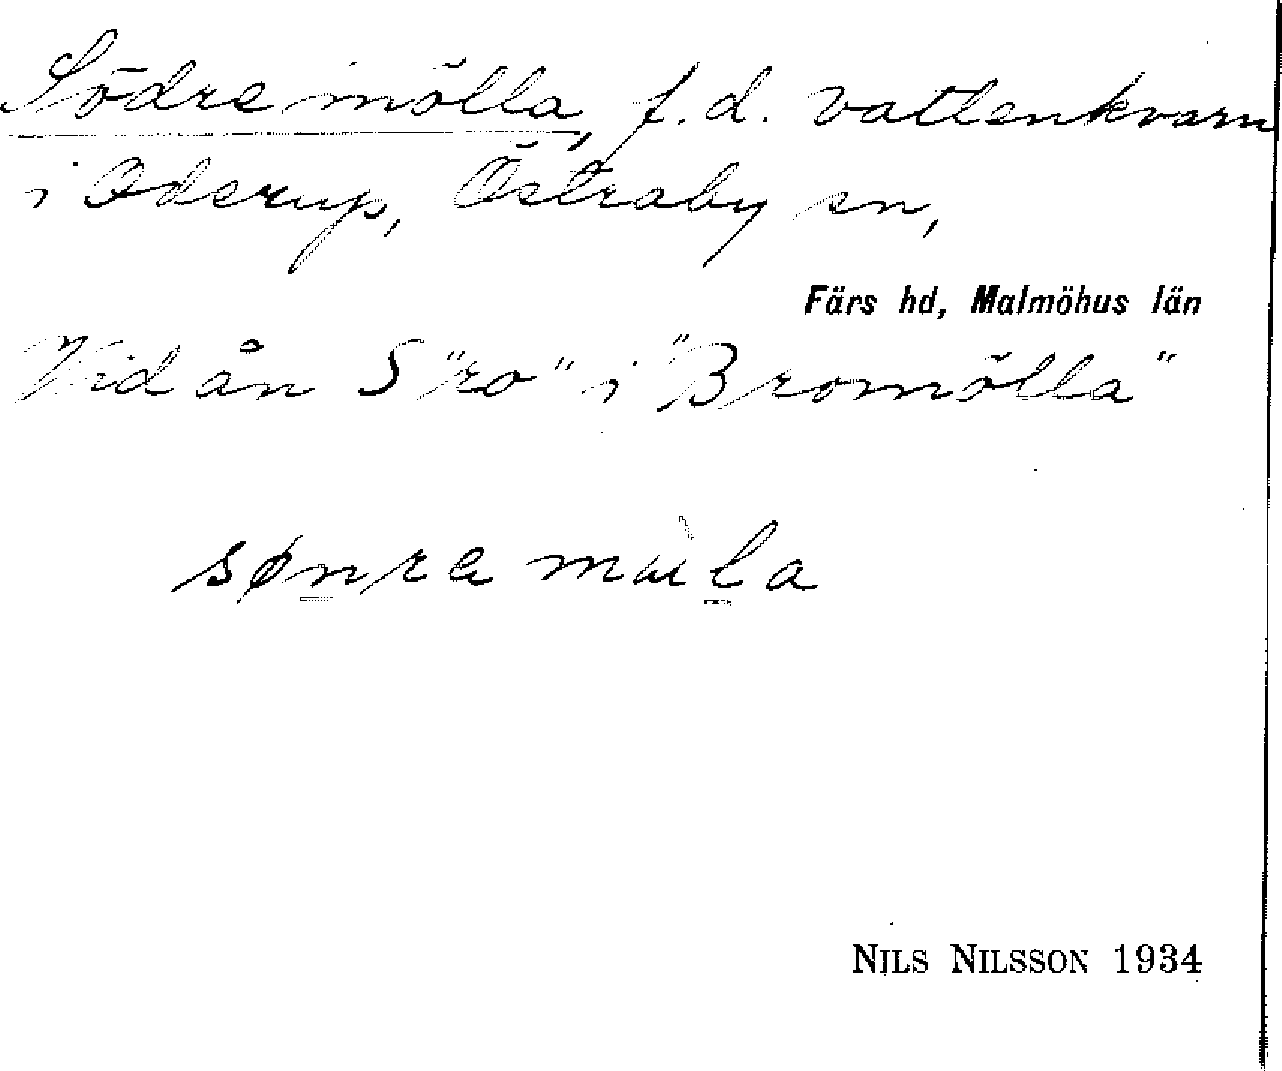 Södre mölla, f.d. vattenkvarn
i Oderup, Östraby sn,
Färs hd, Malmöhus län
Vid ån S "ro" i "Bromölla"
NILS NILSSON 1934